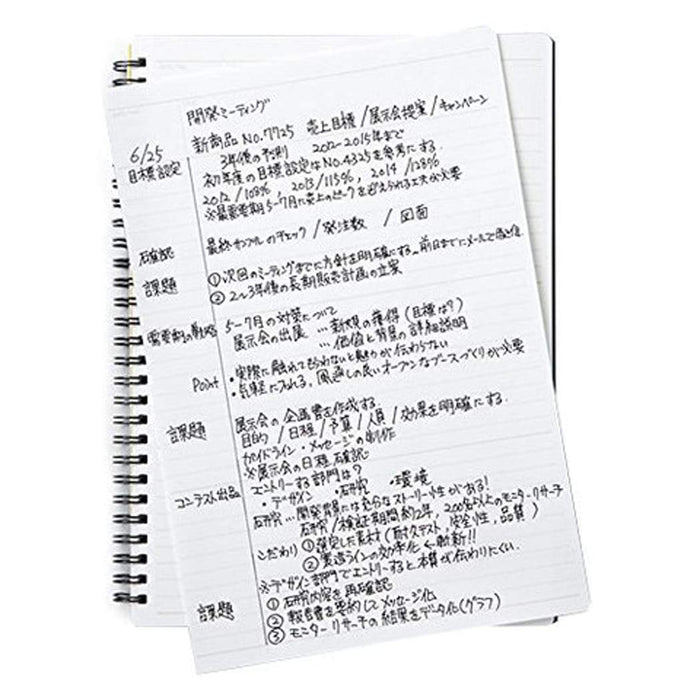 開発ミーティング
6/25 新商品 No.7725 売上目標 / 展示会提案 / キャンペーン
目標設定 3年後の予測 2012-2015年まで
初年度の目標設定はNo.4325を参考にする
2012/108%, 2013/115%, 2014/128%
※最需要期5-7月に売上のピークを迎えられる工夫が必要
確認 最終サンプルのチェック / 発注数 / 図面
課題 ①次回のミーティングまでに方針を明確にする→前日までにメールで
②2〜3年後の長期販売計画の立案
需要期の戦略 5-7月の対策について
展示会の出展 …新規の獲得(目標は?)
…価値と背景の詳細説明
Point ・実際に触れてもらわないと魅力が伝わらない
・気軽に入れる、風通しの良いオープンなブースづくりが必要
課題 展示会の企画書を作成する。
目的 / 日程 / 予算 / 人員 / 効果を明確にする。
ガイドライン・メッセージの制作
※展示会の日程確認
コンテスト出品 エントリーする部門は?
・デザイン ・研究 ・環境
研究…開発背景には充分なストーリー性がある!
研究/検証期間約2年、200名以上のモニターリサーチ
こだわり ①選定した素材(耐久テスト、安全性、品質)
②製造ラインの効率化←斬新!!
※デザイン部門でエントリーすると本質が伝わりにくい。
課題 ①研究内容を再確認
②報告書を要約してメッセージ化
③モニターリサーチの結果をデータ化(グラフ)